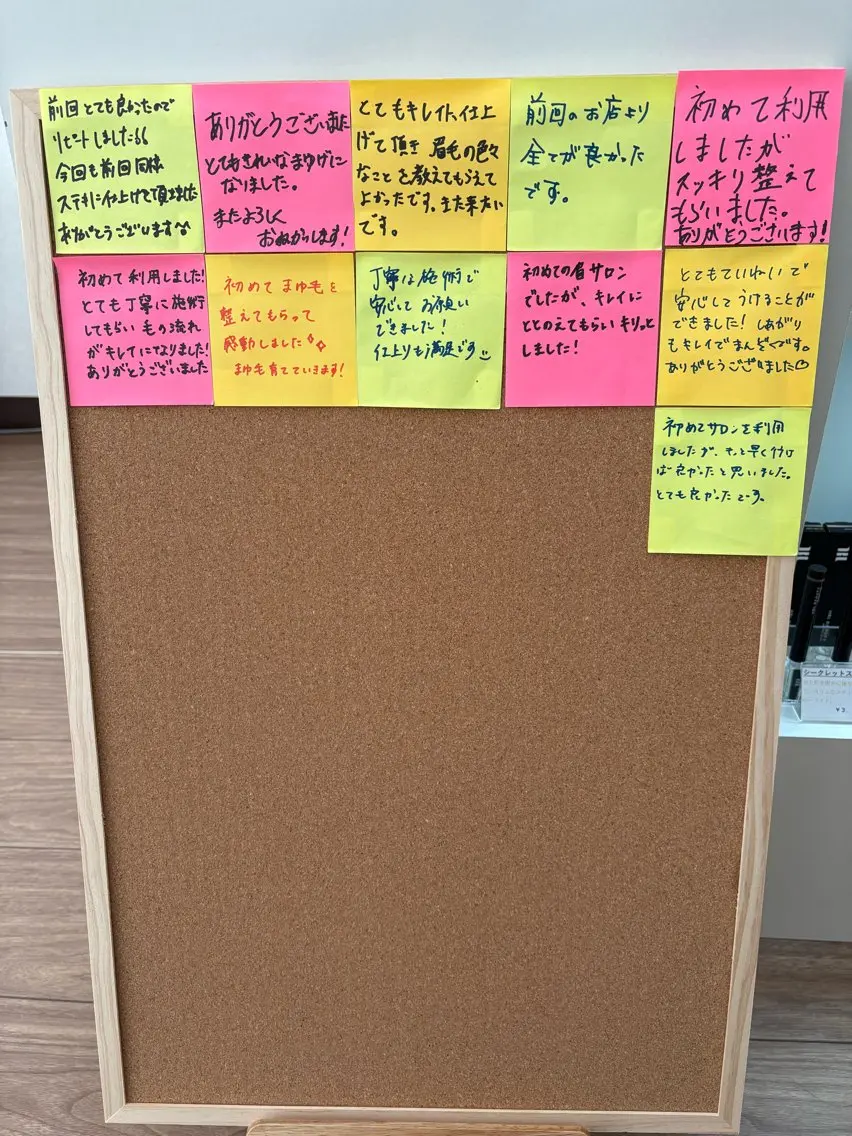 前回とても良かったので
リピートしました!!
今回も前回同様
ステキに仕上げて頂きました
ありがとうございます
ありがとうございました
とてもきれいなまゆげに
なりました。
またよろしく
おねがいします!
とてもキレイに仕上
げて頂き 眉毛の色々
なことを教えてもらえて
よかったです。また来たい
です。
前回のお店より
全てが良かった
です。
初めて利用
しましたが
スッキリ整えて
もらいました。
ありがとうございます!
初めて利用しました!
とても丁寧に施術
してもらい 毛の流れ
がキレイになりました!
ありがとうございました
初めてまゆ毛を
整えてもらって
感動しました
まゆ毛育てていきます!
丁寧な施術で
安心してお願い
できました!
仕上りも満足です
初めての眉サロン
でしたが、キレイに
ととのえてもらいキリッと
しました!
とてもていねいで
安心してうけることが
できました! しあがり
もキレイでまんぞくです。
ありがとうございました♡
初めてサロンを利用
しましたが、もっと早く行け
ば良かったと思いました。
とても良かったです。
シークレットス
¥3